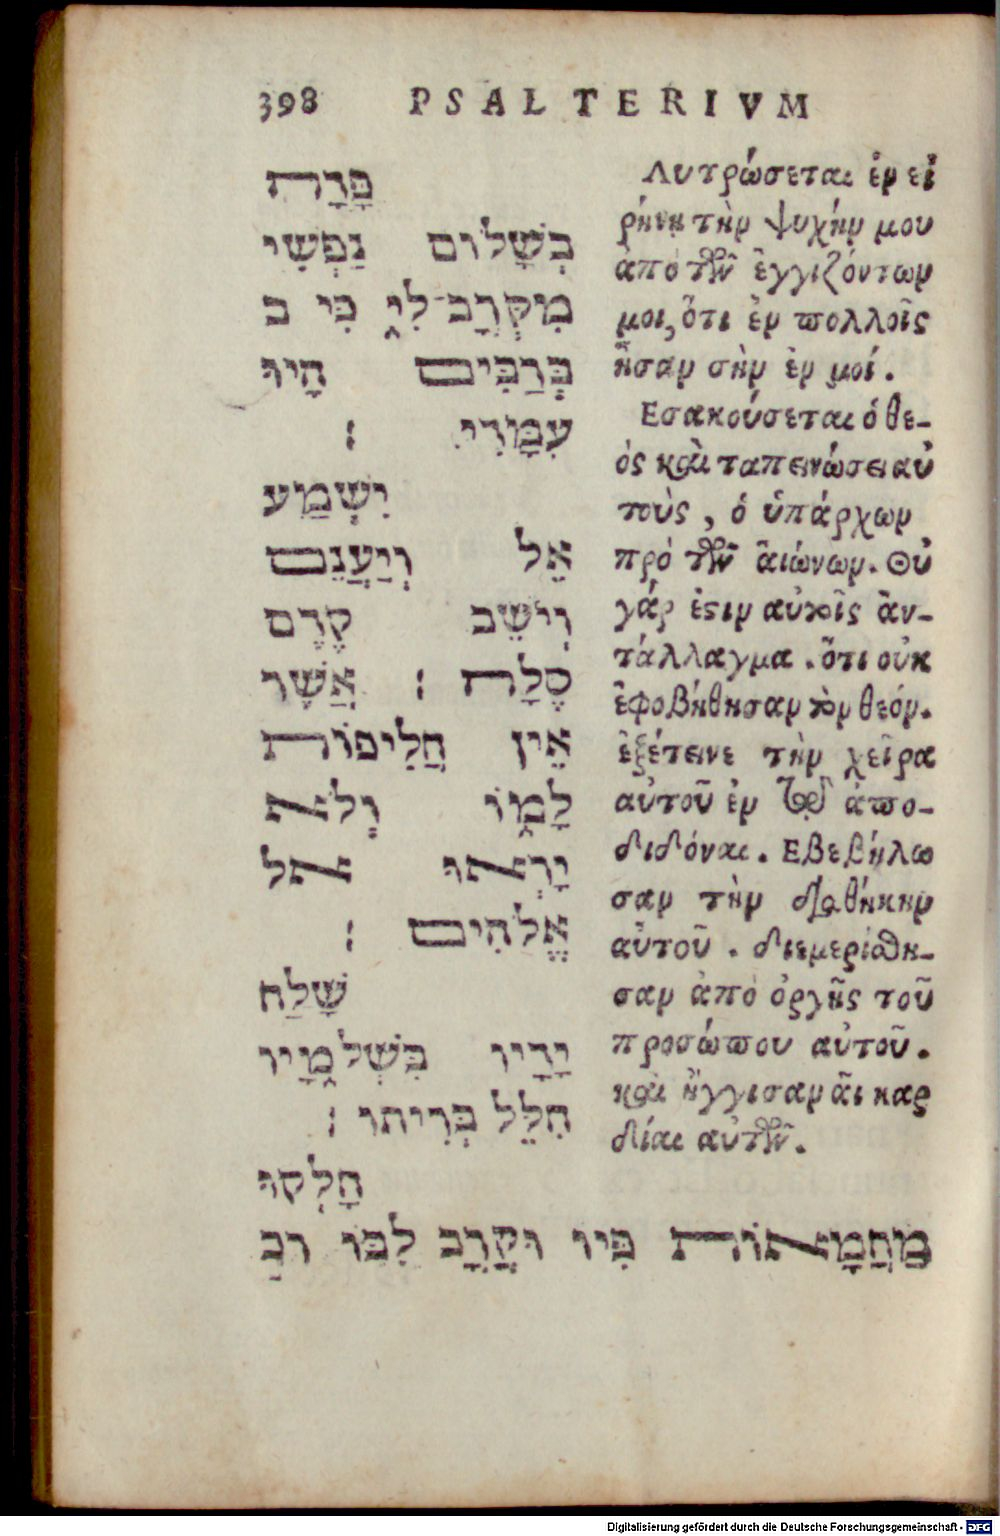 398 PSALTERIVM
פָּדָה
בְשָׁלוֹם נַפְשִׁי
מִקְּרָב־לִי כִּי ב
בְּרַבִּים הָיוּ
עִמָּדִי׃
יִשְׁמַע
אֵל וְיַעֲנֵם
וְיֹשֵׁב קֶדֶם
סֶלָה׃ אֲשֶׁר
אֵין חֲלִיפוֹת
לָמוֹ וְלֹא
יָרְאוּ אל
אֱלֹהִים׃
שָׁלַח
יָדָיו בִּשְׁלֹמָיו
חִלֵּל בְּרִיתוֹ׃
חָלְקוּ
מַחֲמָאוֹת פִּיו וּקֲרָב לִבּוֹ רַכ
Λυτρώσεται ἐν εἰ
ρήνῃ τὴν ψυχήν μου
ἀπὸ τῶν ἐγγιζόντων
μοι, ὅτι ἐν πολλοῖς
ἦσαν σὴν ἐν μοί.
Εσακούσεται ὁ θε-
ὸς καὶ ταπεινώσει αὐ
τοὺς, ὁ ὑπάρχων
πρὸ τῶν αἰώνων. Οὐ
γάρ ἐστιν αὐτοῖς ἀν-
τάλλαγμα. ὅτι οὐκ
ἐφοβήθησαν τὸν θεόν.
ἐξέτεινε τὴν χεῖρα
αὐτοῦ ἐν τῷ ἀπο-
διδόναι. Εβεβήλω
σαν τὴν διαθήκην
αὐτοῦ. διεμερίσθη-
σαν ἀπὸ ὀργῆς τοῦ
προσώπου αὐτοῦ.
καὶ ἤγγισαν αἱ καρ
δίαι αὐτῶν.
Digitalisierung gefördert durch die Deutsche Forschungsgemeinschaft - DFG